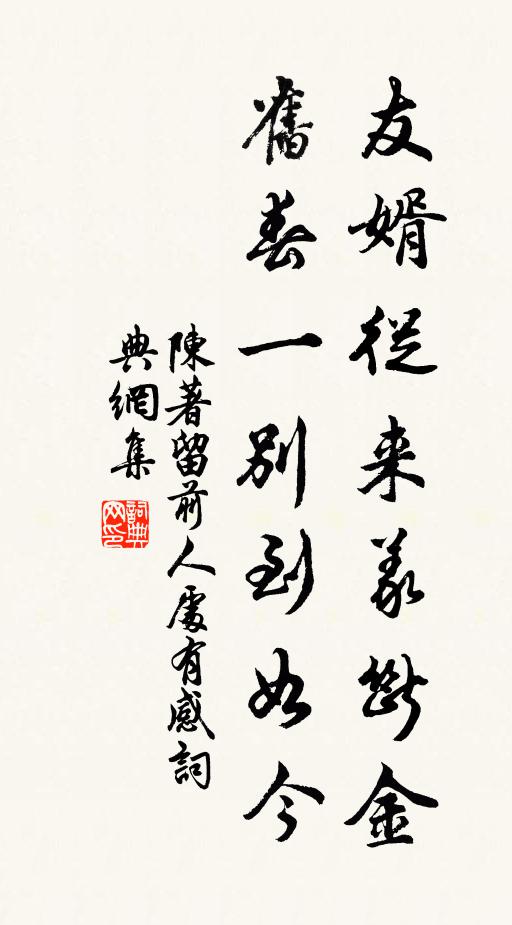 友婿從来義断金
舊春一別到如今
陳著留前人處有感詞
典網集
詞典網印